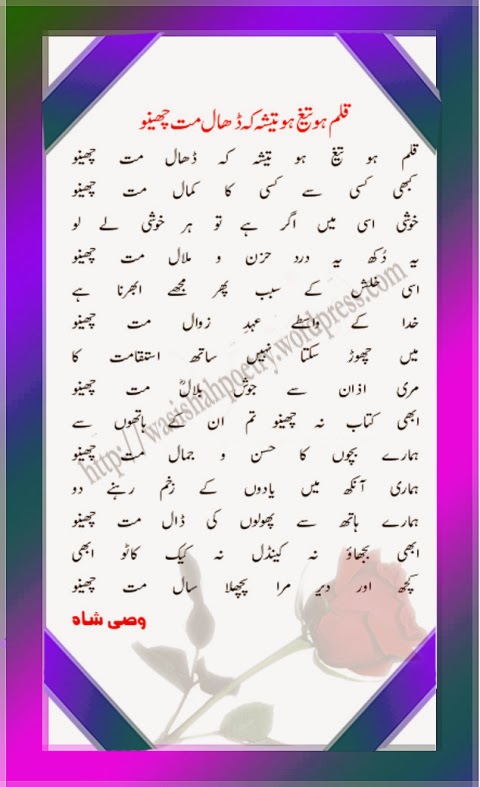 قلم ہو تیغ ہو تیشہ کہ ڈھال مت چھینو
قلم ہو تیغ ہو تیشہ کہ ڈھال مت چھینو
کبھی کسی سے کسی کا کمال مت چھینو
خوشی اسی میں اگر ہے تو ہر خوشی لے لو
یہ دُکھ یہ درد حزن و ملال مت چھینو
اسی خلش کے سبب پھر مجھے ابھرنا ہے
خدا کے واسطے عہدِ زوال مت چھینو
میں چھوڑ سکتا نہیں ساتھ استقامت کا
مری اذان سے جوشِ بلالؓ مت چھینو
ابھی کتاب نہ چھینو تم ان کے ہاتھوں سے
ہمارے بچوں کا حسن و جمال مت چھینو
ہماری آنکھ میں یادوں کے زخم رہنے دو
ہمارے ہاتھ سے پھولوں کی ڈال مت چھینو
ابھی بجھاؤ نہ کینڈل نہ کیک کاٹو ابھی
کچھ اور دیر مرا پچھلا سال مت چھینو
وصی شاہ
http://wasishahpoetry.wordpress.com